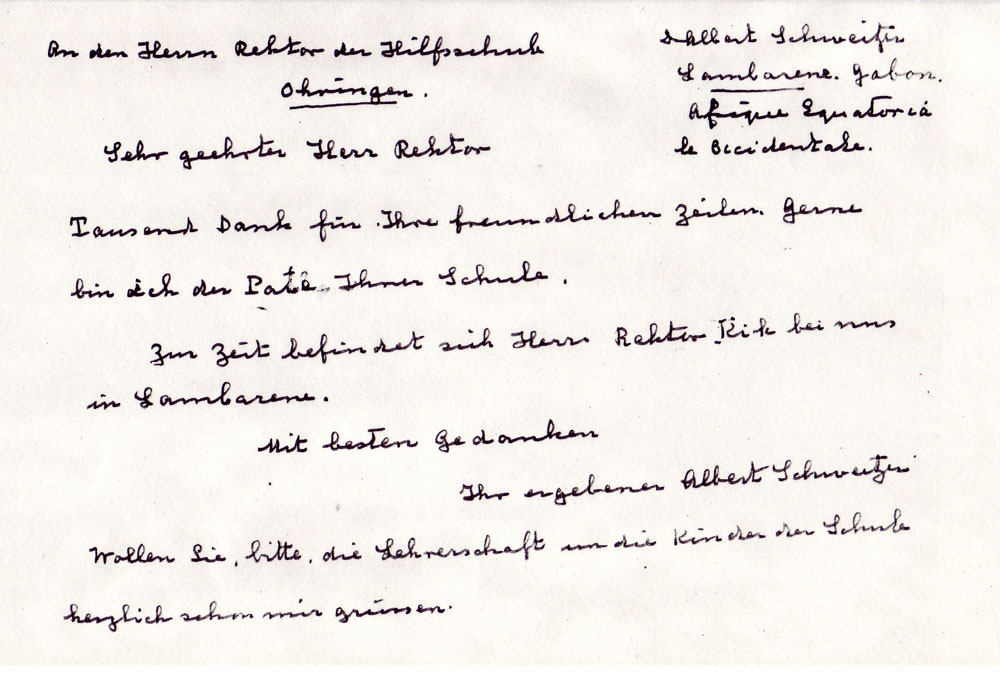 An den Herrn Rektor der Hilfsschule
Ohringen.
D Albert Schweitzer
Lambarene. Gabon.
Afrique Equatoria
le Occidentale.
Sehr geehrter Herr Rektor
Tausend Dank für Ihre freundlichen Zeilen. Gerne
bin ich der Pate Ihrer Schule.
Zur Zeit befindet sich Herr Rektor Kik bei uns
in Lambarene.
Mit besten Gedanken
Ihr ergebener Albert Schweitzer
Wollen Sie, bitte, die Lehrerschaft un die Kinder der Schule
herzlich schon mir grüssen.